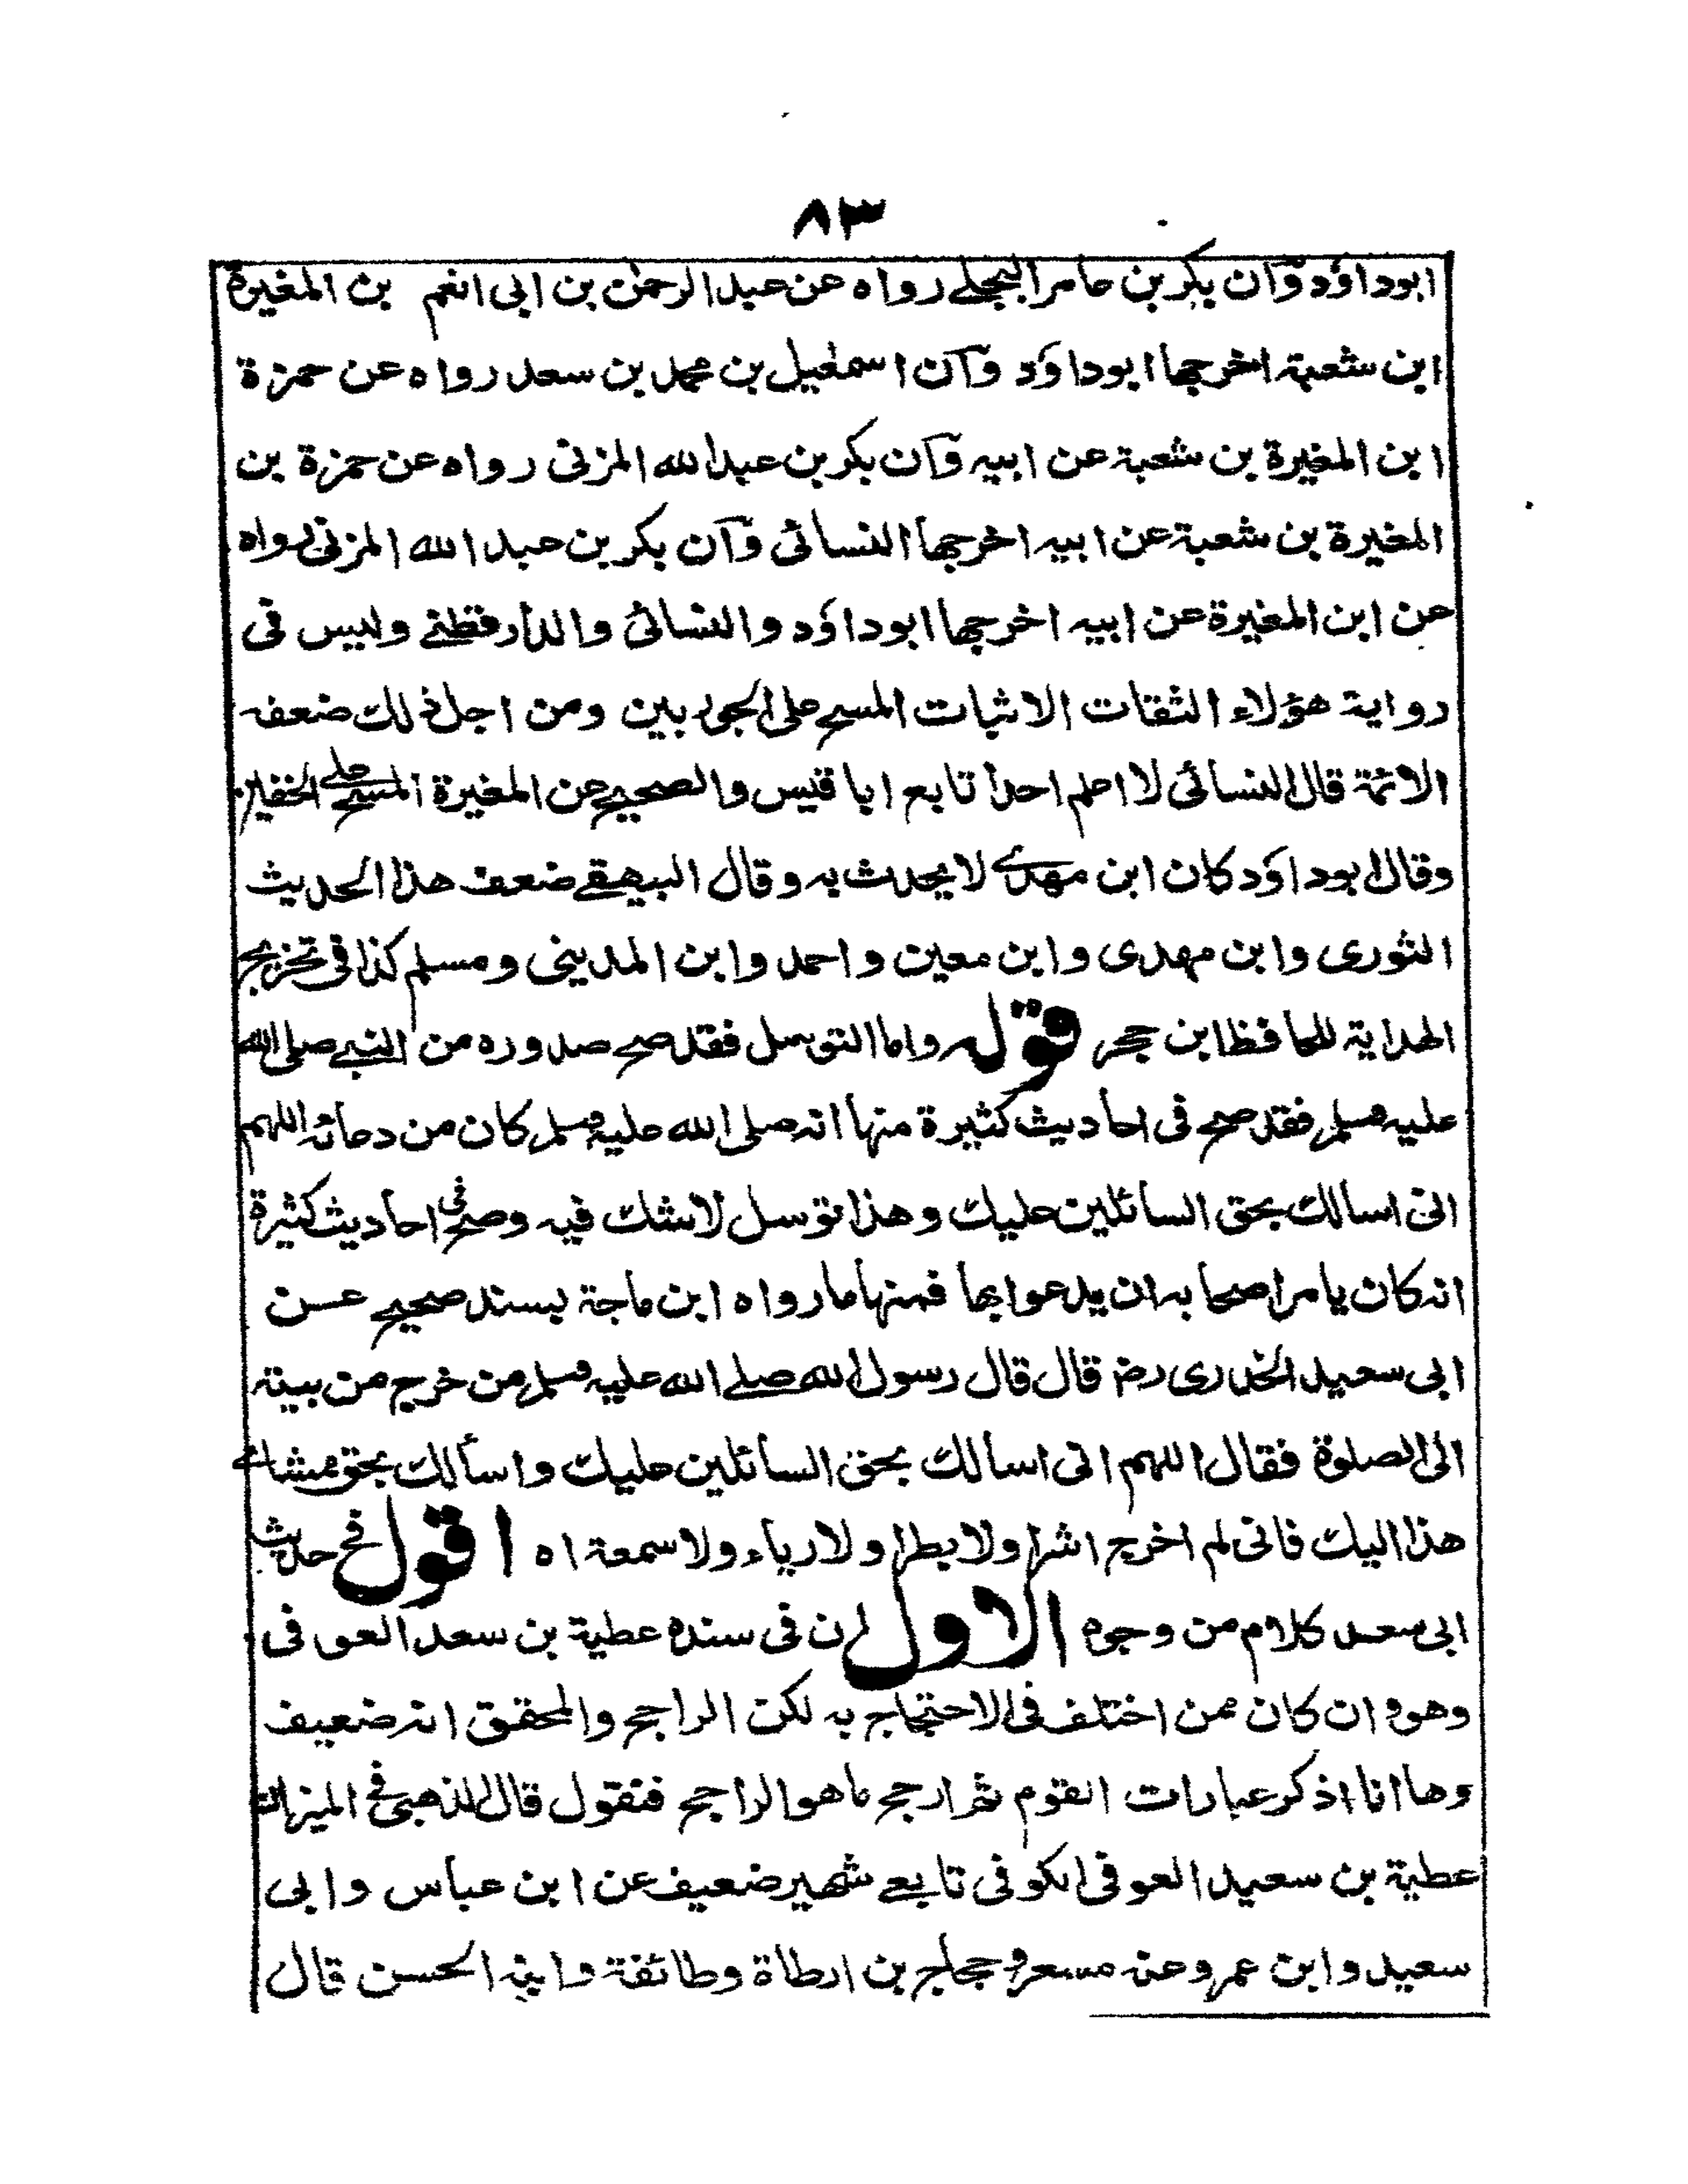 ٨٣
ابوداؤد وآن بكر بن عامر البجلے رواه عن عبدالرحمٰن بن ابى انعم بن المغيرة
ابن شعبة اخرجها ابوداؤد وآن اسمٰعيل بن محمد بن سعد رواه عن حمزة
ابن المغيرة بن شعبة عن ابيه وآن بكر بن عبدالله المزنى رواه عن حمزة بن
المغيرة بن شعبة عن ابيه اخرجها النسائى وآن بكر بن عبدالله المزنى رواه
عن ابن المغيرة عن ابيه اخرجها ابوداؤد والنسائى والدارقطنے وليس فى
رواية هؤلاء الثقات الاثبات المسح على الجوربين ومن اجل ذلك ضعفه
الائمة قال النسائى لا اعلم احدا تابع ابا قيس والصحيح عن المغيرة المسح علے الخفين
وقال ابوداؤد كان ابن مهدے لا يحدث به وقال البيهقے ضعف هذا الحديث
الثورى وابن مهدى وابن معين واحمد وابن المدينى ومسلم كذا فى تخريج
الهداية للحافظ ابن حجر قوله واما التوسل فقد صح صدوره من النبے صلى الله
عليه وسلم فقد صح فى احاديث كثيرة منها انه صلى الله عليه وسلم كان من دعائه اللهم
انى اسالك بحق السائلين عليك وهذا توسل لاشك فيه وصح فى احاديث كثيرة
انه كان يامر اصحابه ان يدعوا بها فمنها ما رواه ابن ماجة بسند صحيح عن
ابى سعيد الخدرى رض قال قال رسول الله صلے الله عليه وسلم من خرج من بيته
الى الصلوة فقال اللهم انى اسالك بحق السائلين عليك واسألك بحق ممشاے
هذا اليك فانى لم اخرج اشرا ولا بطرا ولا رياء ولا سمعة اه اقول فے حديث
ابى سعد كلام من وجوه الاول ان فى سنده عطية بن سعد العوفى
وهو وان كان ممن اختلف فى الاحتجاج به لكن الراجح والمحقق انه ضعيف
وها انا اذكر عبارات القوم ثم ارجح ما هو الراجح فنقول قال الذهبى فے الميزان
عطية بن سعيد العوفى الكوفى تابعے شهير ضعيف عن ابن عباس وابى
سعيد وابن عمر وعنه مسعر وحجاج بن ارطاة وطائفة وابنه الحسن قال